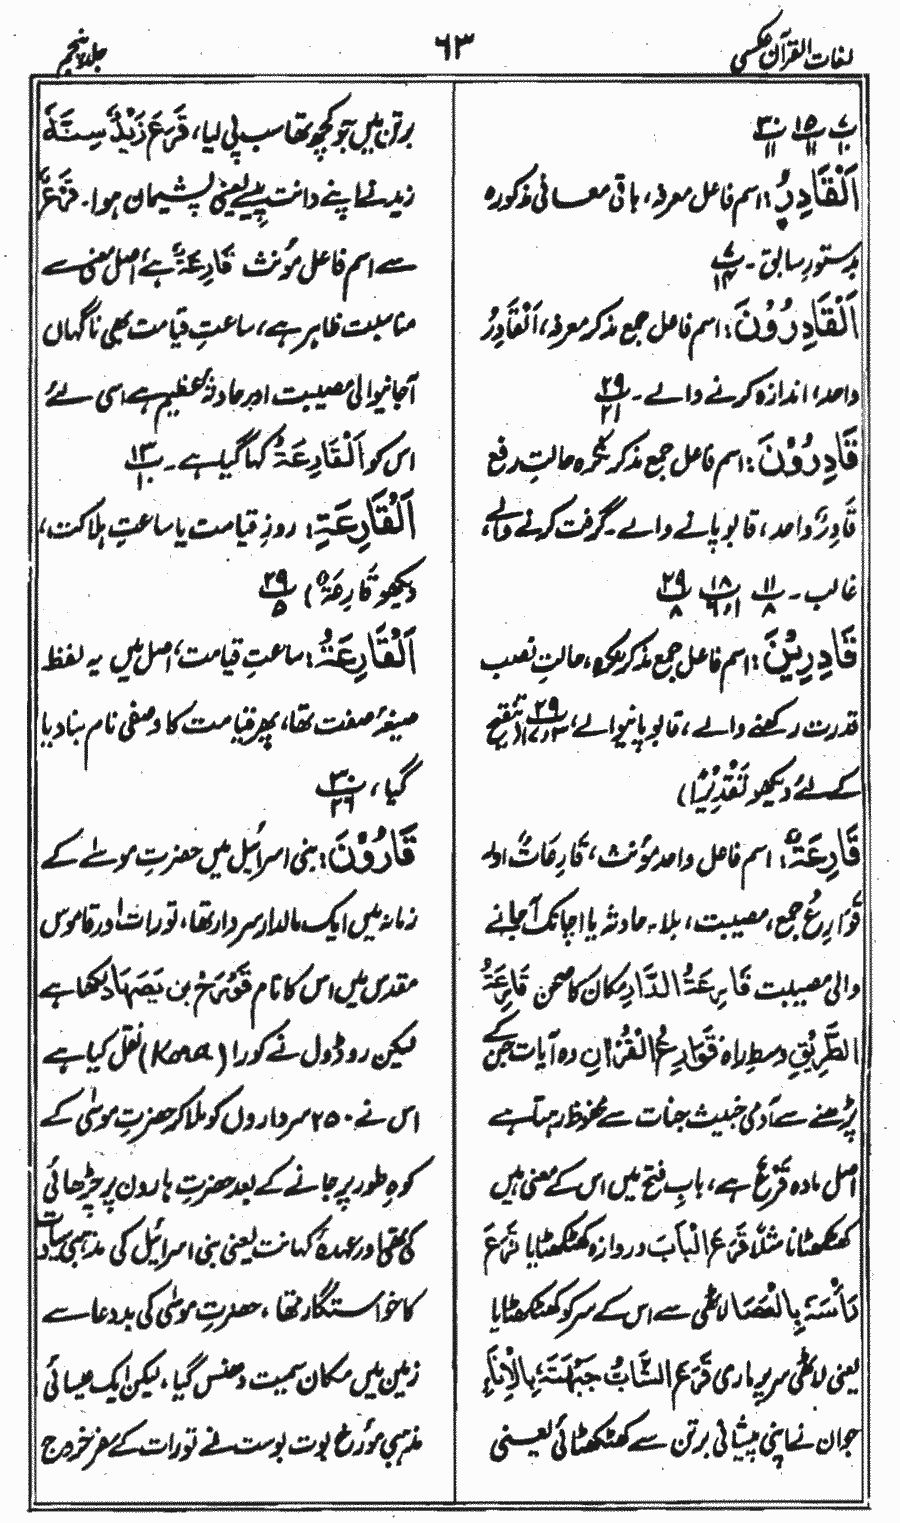 لغات القرآن عکسی
۶۳
جلد پنجم
۷/۱۰ ۱۵/۱۱ ۳۰/۱۱
اَلْقَادِرُ: اسم فاعل معرفہ، باقی معانی مذکورہ
بدستورِ سابق۔ ۷/۱۴
اَلْقَادِرُوْنَ: اسم فاعل جمع مذکر معرفہ، اَلْقَادِرُ
واحد، اندازہ کرنے والے۔ ۲۹/۲۱
قَادِرُوْنَ: اسم فاعل جمع مذکر نکرہ حالتِ رفع
قَادِرٌ واحد، قابو پانے والے۔ گرفت کرنے والے،
غالب۔ ۱۱/۸ ۱۸/۱و۶ ۲۹/۸
قَادِرِیْنَ: اسم فاعل جمع مذکر نکرہ، حالتِ نصب
قدرت رکھنے والے، قابو پانیوالے، (تنقیح
کے لئے دیکھو تَقْدِیْرًا)
قَارِعَۃٌ: اسم فاعل واحد مؤنث، قَارِعَاتٌ اور
قَوَارِعُ جمع، مصیبت، بلا۔ حادثہ یا اچانک آجانے
والی مصیبت قَارِعَۃُ الدَّارِ مکان کا صحن قَارِعَۃُ
الطَّرِیْقِ وسطِ راہ قَوَارِعُ الْقُرْاٰنِ وہ آیات جن کے
پڑھنے سے آدمی خبیث جنات سے محفوظ رہتا ہے
اصل مادہ قَرْعٌ ہے، بابِ فتح میں اس کے معنی ہیں
کھٹکھٹانا مثلًا قَرَعَ الْبَابَ دروازہ کھٹکھٹایا قَرَعَ
رَأْسَہٗ بِالْعَصَا لاٹھی سے اس کے سر کو کھٹکھٹایا
یعنی لاٹھی سر پر ماری قَرَعَ الشَّابُّ جَبْہَتَہٗ بِالْاِنَاءِ
جوان نے اپنی پیشانی برتن سے کھٹکھٹائی یعنی
برتن میں جو کچھ تھا سب پی لیا، قَرَعَ زَیْدٌ سِنَّہٗ
زید نے اپنے دانت پیسے یعنی پشیمان ہوا۔ قَرَعَ
سے اسم فاعل مؤنث قَارِعَۃٌ ہے، اصل معنی سے
مناسبت ظاہر ہے، ساعتِ قیامت بھی ناگہاں
آجانیوالی مصیبت اور حادثۂ عظیم ہے اسی لئے
اس کو اَلْقَارِعَۃُ کہا گیا ہے۔ ۱۳/۱۰
اَلْقَارِعَۃِ: روزِ قیامت یا ساعتِ ہلاکت،
دیکھو قَارِعَۃٌ) ۲۹/۵
اَلْقَارِعَۃُ: ساعتِ قیامت، اصل میں یہ لفظ
صیغۂ صفت تھا، پھر قیامت کا وصفی نام بنا دیا
گیا، ۳۰/۲۶
قَارُوْنَ: بنی اسرائیل میں حضرتِ موسٰے کے
زمانہ میں ایک مالدار سردار تھا، تورات اور قاموس
مقدس میں اس کا نام قورح بن یَصَہَار لکھا ہے
لیکن روڈول نے کورا (Kora) نقل کیا ہے
اس نے ۲۵۰ سرداروں کو ملاکر حضرتِ موسٰی کے
کوہِ طور پر جانے کے بعد حضرتِ ہارون پر چڑھائی
کی تھی اور عہدۂ کہانت یعنی بنی اسرائیل کی مذہبی سیادت
کا خواستگار تھا، حضرتِ موسٰی کی بددعا سے
زمین میں مکان سمیت دھنس گیا، لیکن ایک عیسائی
مذہبی مؤرخ بوت بوست نے تورات کے سفر خروج